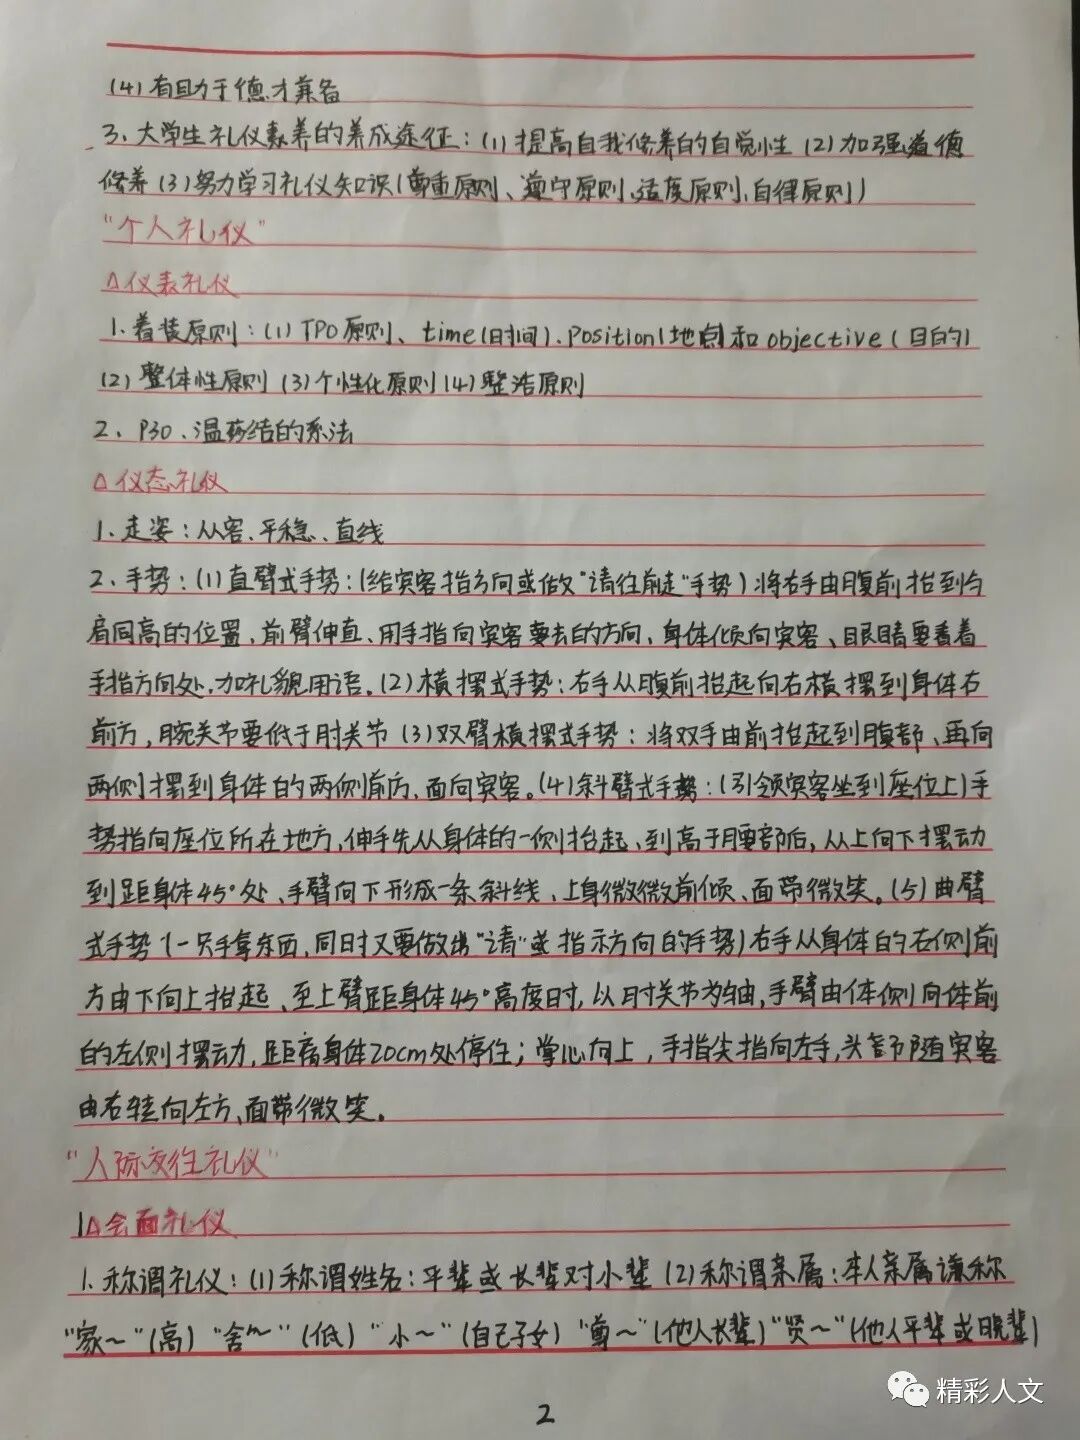 (4)有助于德才兼备
3、大学生礼仪素养的养成途径：(1)提高自我修养的自觉性 (2)加强道德
修养 (3)努力学习礼仪知识(尊重原则、遵守原则、适度原则、自律原则)
"个人礼仪"
△仪表礼仪
1.着装原则：(1)TPO原则、time(时间)、position(地点)和objective(目的)
(2)整体性原则 (3)个性化原则 (4)整洁原则
2、P30、温莎结的系法
△仪态礼仪
1、走姿：从容、平稳、直线
2、手势：(1)直臂式手势：(给宾客指方向或做"请往前走"手势)将右手由腹前抬到与
肩同高的位置，前臂伸直、用手指向宾客要去的方向，身体倾向宾客、眼睛要看着
手指方向处，加礼貌用语。(2)横摆式手势：右手从腹前抬起向右横摆到身体右
前方，腕关节要低于肘关节 (3)双臂横摆式手势：将双手由前抬起到腹部、再向
两侧摆到身体的两侧前方、面向宾客。(4)斜臂式手势：(引领宾客坐到座位上)手
势指向座位所在地方，伸手先从身体的一侧抬起，到高于腰部后，从上向下摆动
到距身体45°处、手臂向下形成一条斜线、上身微微前倾、面带微笑。(5)曲臂
式手势(一只手拿东西，同时又要做出"请"或指示方向的手势)右手从身体的右侧前
方由下向上抬起、至上臂距身体45°高度时，以肘关节为轴，手臂由体侧向体前
的左侧摆动，距离身体20cm处停住；掌心向上，手指尖指向左手，头部随宾客
由右转向左方、面带微笑。
"人际交往礼仪"
△会面礼仪
1.称谓礼仪：(1)称谓姓名：平辈或长辈对小辈 (2)称谓亲属：本人亲属谦称
"家～"(高) "舍～"(低) "小～"(自己子女) "尊～"(他人长辈) "贤～"(他人平辈或晚辈)
2
精彩人文